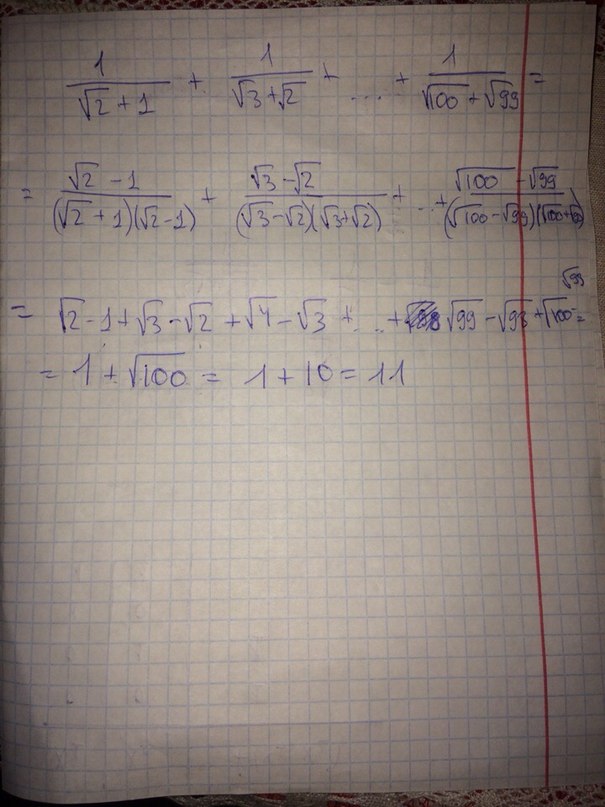 1/(√2 + 1) + 1/(√3 + √2) + ... + 1/(√100 + √99) =
= (√2 - 1)/((√2 + 1)(√2 - 1)) + (√3 - √2)/((√3 - √2)(√3 + √2)) + ... + (√100 - √99)/((√100 - √99)(√100 + √99))
= √2 - 1 + √3 - √2 + √4 - √3 + ... + √99 - √98 + √100 - √99 =
= 1 + √100 = 1 + 10 = 11